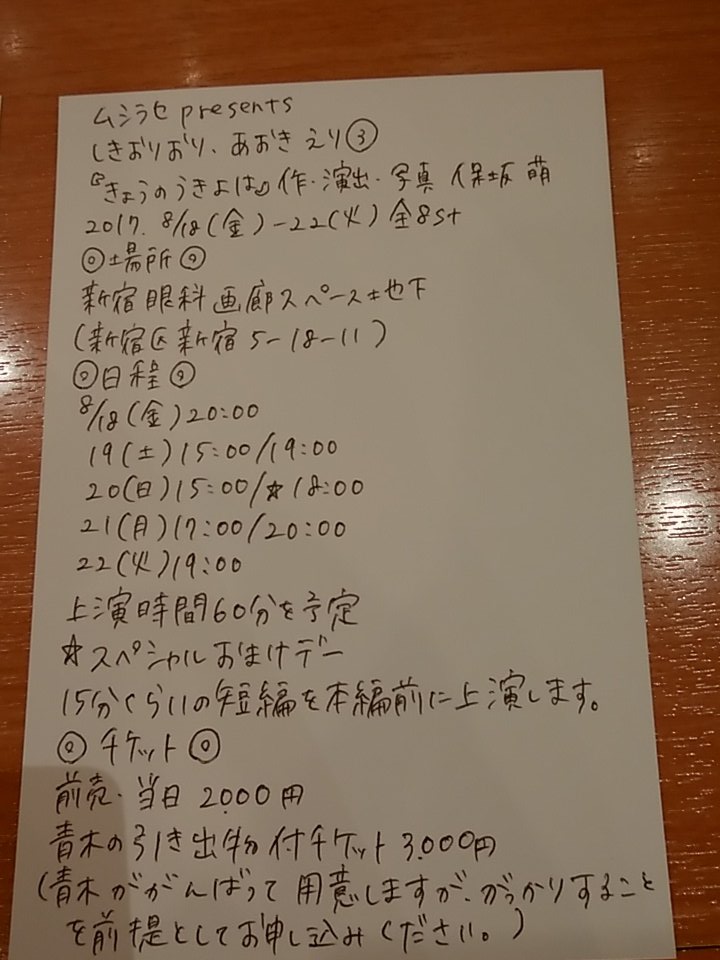 ムシラセ presents
しきおりおり、あおき えり③
『きょうのうきよは』作・演出・写真 保坂 萌
2017. 8/18(金)-22(火) 全8st
◎場所◎
新宿眼科画廊スペース地下
(新宿区新宿5-18-11)
◎日程◎
8/18(金)20:00
19(土)15:00/19:00
20(日)15:00/☆18:00
21(月)17:00/20:00
22(火)19:00
上演時間60分を予定
☆スペシャルおまけデー
15分くらいの短編を本編前に上演します。
◎チケット◎
前売・当日 2.000円
青木の引き出物付チケット 3.000円
(青木ががんばって用意しますが、がっかりすること
を前提としてお申し込みください。)